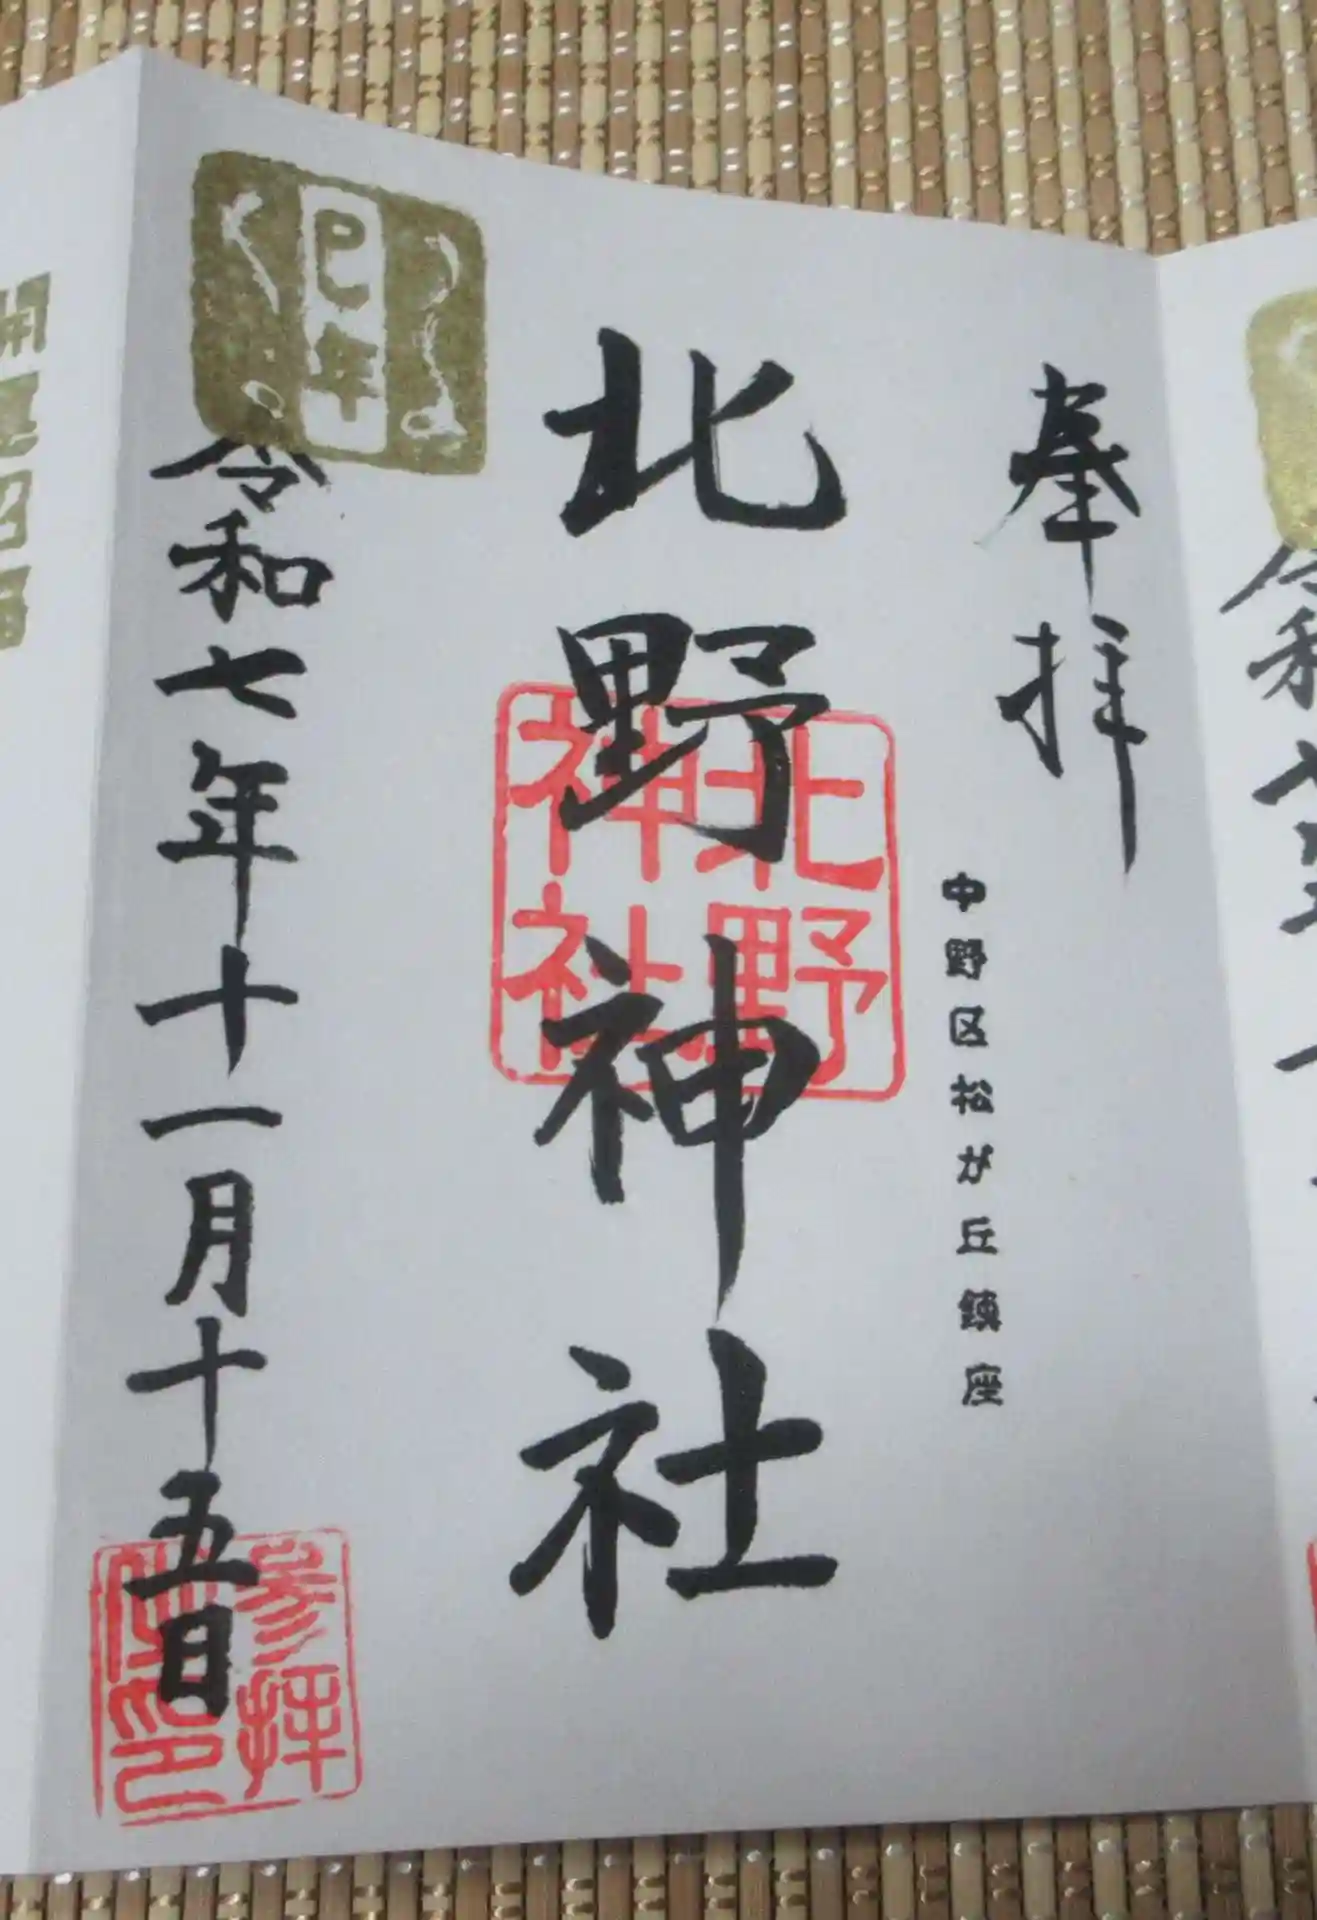 奉拝
中野区松が丘鎮座
北野神社
北野
神社
巳年
令和七年十一月十五日
参拝
令和七年